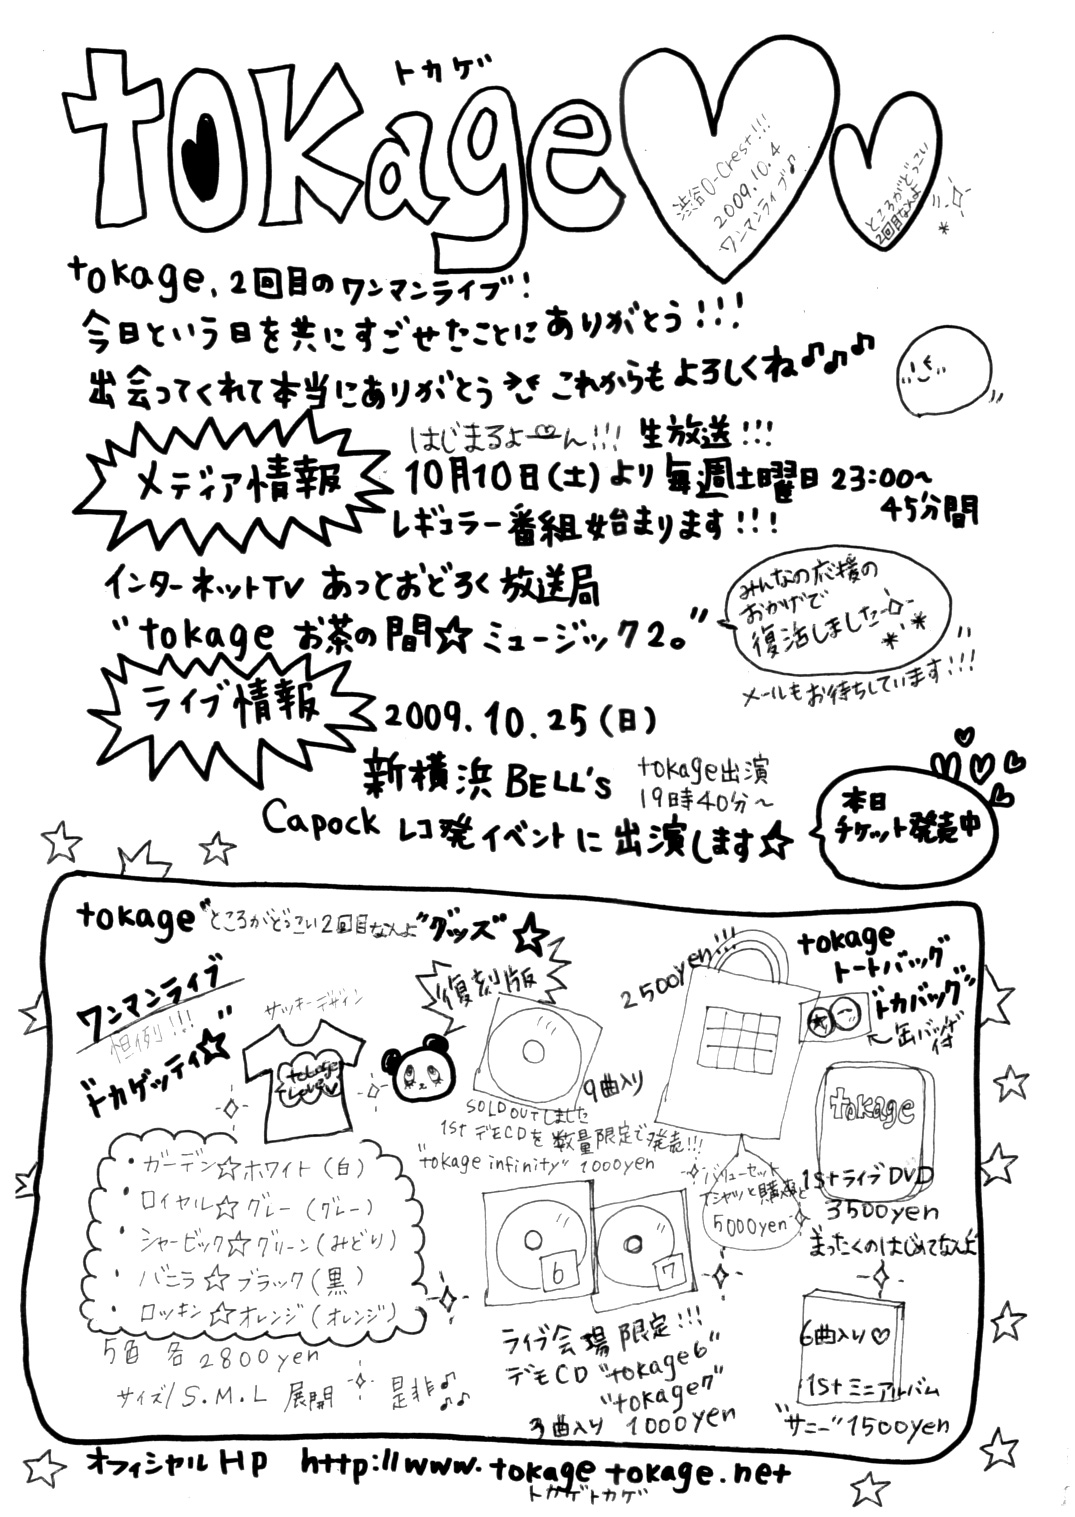 トカゲ
tokage
渋谷O-Crest!!!
2009.10.4
ワンマンライブ♪
ところがどっこい
2回目なんよ
tokage、2回目のワンマンライブ!
今日という日を共にすごせたことにありがとう!!!
出会ってくれて本当にありがとう これからもよろしくね♪♪♪
メディア情報
はじまるよーん!!! 生放送!!!
10月10日(土)より毎週土曜日 23:00〜
45分間
レギュラー番組始まります!!!
インターネットTV あっとおどろく放送局
"tokage お茶の間☆ミュージック2。"
みんなの応援の
おかげで
復活しました
メールもお待ちしています!!!
ライブ情報
2009.10.25(日)
新横浜 BELL's
tokage出演
19時40分〜
Capock レコ発イベントに出演します☆
本日
チケット発売中
tokage"ところがどっこい2回目なんよ"グッズ☆
ワンマンライブ
恒例!!!
"トカゲッティ☆"
サッキーデザイン
tokage
・ガーデン☆ホワイト(白)
・ロイヤル☆グレー(グレー)
・シャービック☆グリーン(みどり)
・バニラ☆ブラック(黒)
・ロッキン☆オレンジ(オレンジ)
5色 各 2800yen
サイズ/S.M.L 展開 是非♪♪
復刻版
9曲入り
SOLD OUTしました
1st デモCDを数量限定で発売!!!
"tokage infinity" 1000yen
6
7
ライブ会場限定!!!
デモCD "tokage6"
"tokage7"
3曲入り 1000yen
2500yen!!!
tokage
トートバッグ
"トカバッグ"
缶バッヂ付
バリューセット
Tシャツと購入
5000yen
tokage
1stライブDVD
3500yen
まったくのはじめてなんよ
6曲入り♡
1stミニアルバム
"サニー"1500yen
オフィシャルHP http://www.tokagetokage.net
トカゲトカゲ